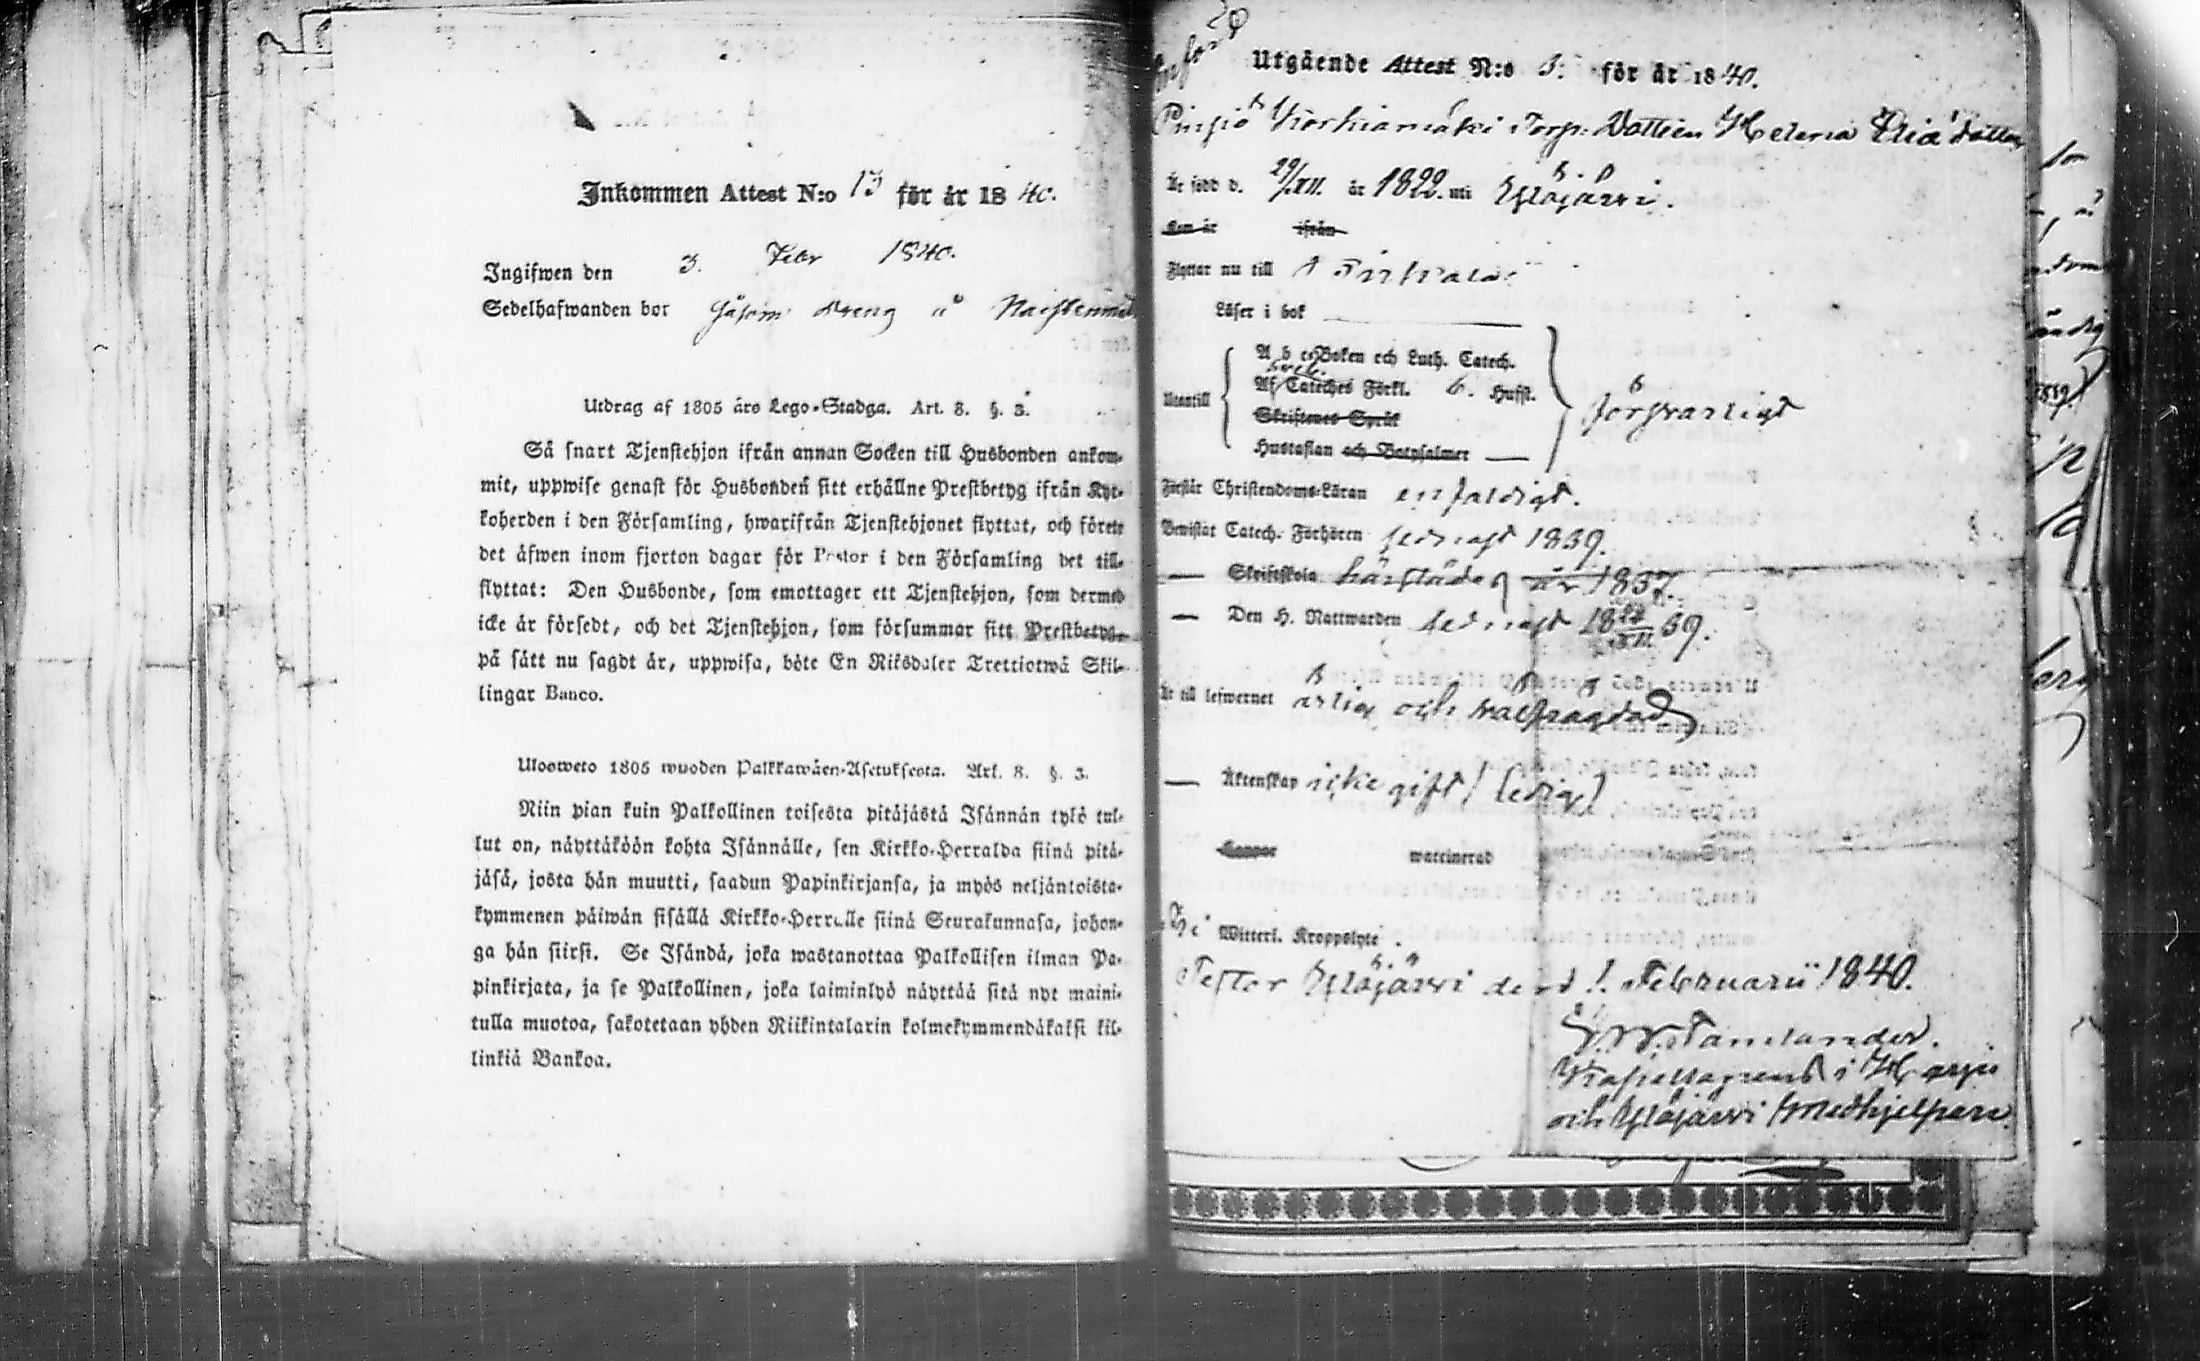 Inkommen Attest N:o 13 för år 1840.
Ingifwen den 3. Febr 1840.
Sedelhafwanden bor såsom dreng å
Utdrag af 1805 års Lego-Stadga. Art. 8. §. 3.
Så snart Tjenstehjon ifrån annan Socken till Husbonden ankom-
mit, uppwise genast för Husbonden sitt erhållne Prestbetyg ifrån Kyr-
koherden i den Församling, hwarifrån Tjenstehjonet flyttat, och förete
det äfwen inom fjorton dagar för Pastor i den Församling det till-
flyttat: Den Husbonde, som emottager ett Tjenstehjon, som dermed
icke är försedt, och det Tjenstehjon, som försummar sitt Prestbetyg,
på sätt nu sagdt är, uppwisa, böte En Riksdaler Trettiotwå Skil-
lingar Banco.
Ulosweto 1805 wuoden Palkkawäen-Asetuksesta. Art. 8. §. 3.
Niin pian kuin Palkollinen toisesta pitäjästä Isännän tykö tul-
lut on, näyttäköön kohta Isännälle, sen Kirkko-Herralda siinä pitä-
jäsä, josta hän muutti, saadun Papinkirjansa, ja myös neljäntoista-
kymmenen päiwän sisällä Kirkko-Herralle siinä Seurakunnasa, johon-
ga hän siirsi. Se Isändä, joka wastanottaa Palkollisen ilman Pa-
pinkirjata, ja se Palkollinen, joka laiminlyö näyttää sitä nyt maini-
tulla muotoa, sakotetaan yhden Riikintalarin kolmekymmendäkaksi kil-
linkiä Bankoa.
Utgående Attest N:o 3. för år 1840.
Pinsiö Torp. Helena
Är född d. 29/XII. år 1822. uti Ylöjärwi.
Kom år ifrån
Flyttar nu till
Läser i bok
Utantill
A b c Boken och Luth. Catech.
Af Cateches Förkl. 6. Hufst.
Skriftenes Språk
Hustaflan och Botpsalmer
försvarligt
Förstår Christendoms-Läran enfaldigt.
Bewistat Catech. Förhören sednast 1839.
— Skriftskola härstädes år 1837.
— Den H. Nattwarden sednast 18 39.
Är till lefwernet ärlig och välfrägdad
— Äktenskap icke gift/ledig/
Koppor waccinerad
Witterl. Kroppslyte.
Testor Ylöjärwi den 1. Februarii 1840.
G. W. Tamlander.
Kapellspredik i Harju
och Ylöjärwi medhjelpare.